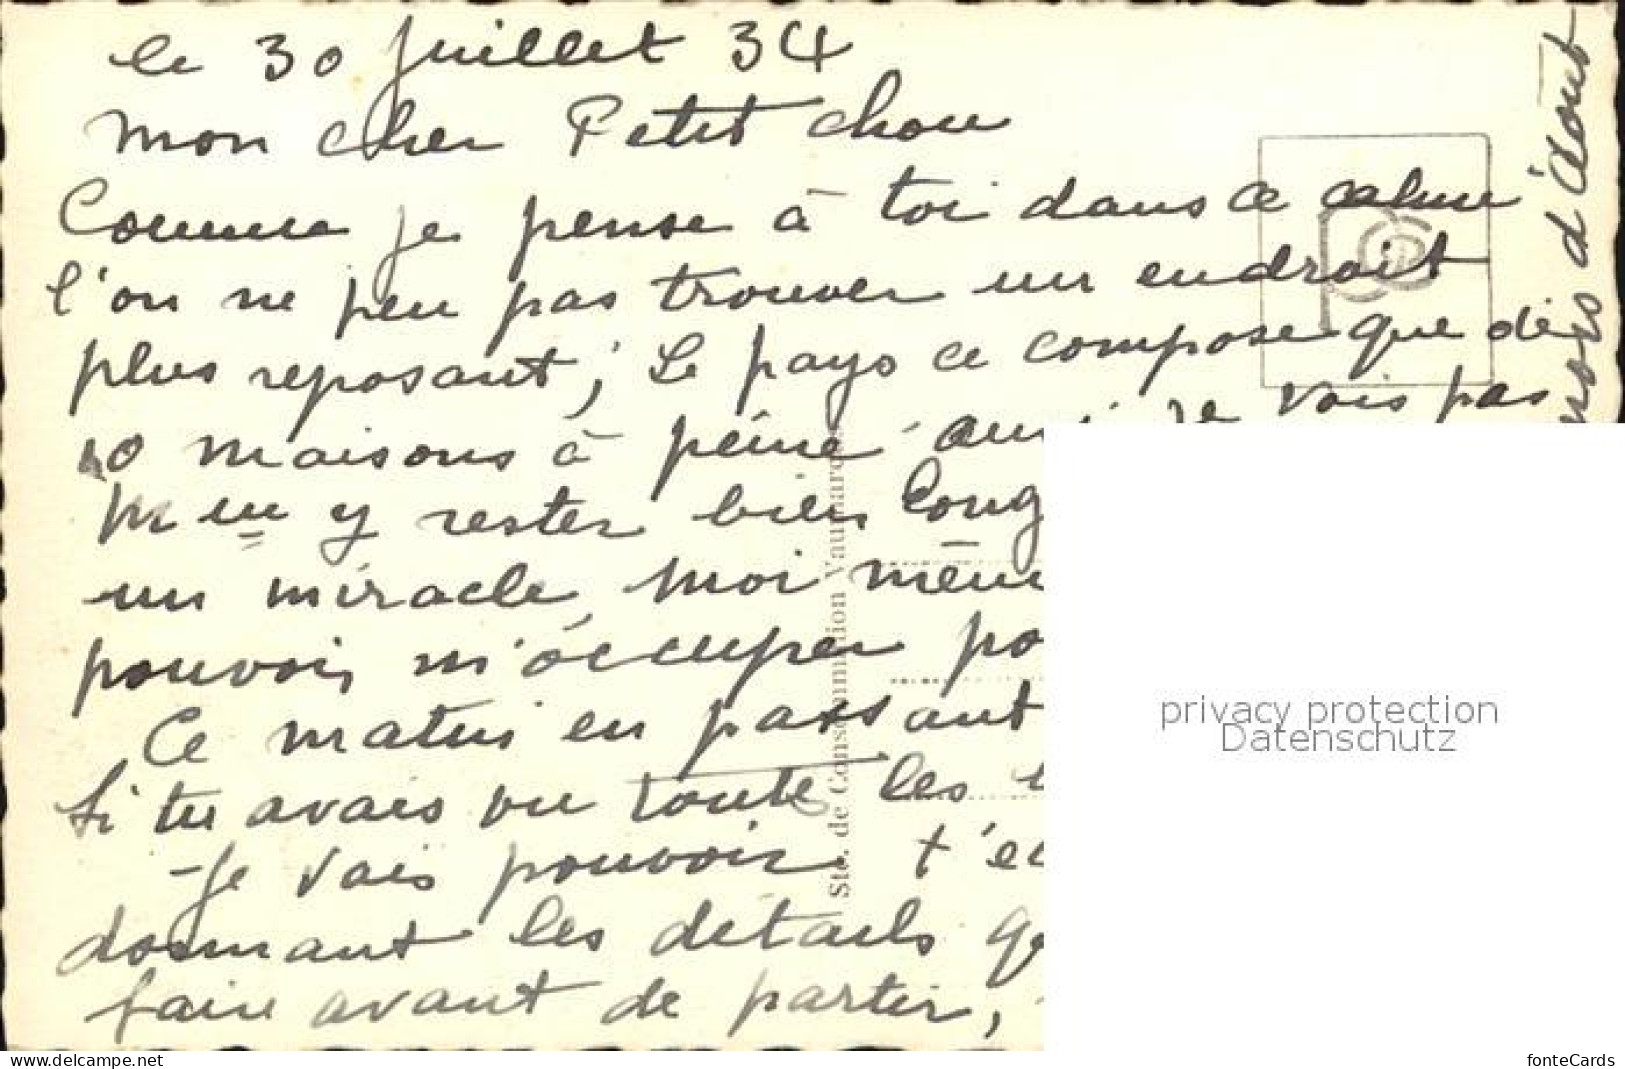 le 30 juillet 34
Mon cher Petit chou
Comme je pense à toi dans ce calme
l'on ne peu pas trouver un endroit
plus reposant; Le pays ce compose que de
10 maisons à peine je vais pas
y rester bien long
un miracle, Moi mêm
pouvoir m'occuper po
Ce matin en passant
Si tu avais vu toute les
- Je vais pouvoir t'ec
donnant les détails q
faire avant de partir,
mois d'Août
Sté. de Consommation Vaumarcus
privacy protection
Datenschutz
www.delcampe.net
fonteCards